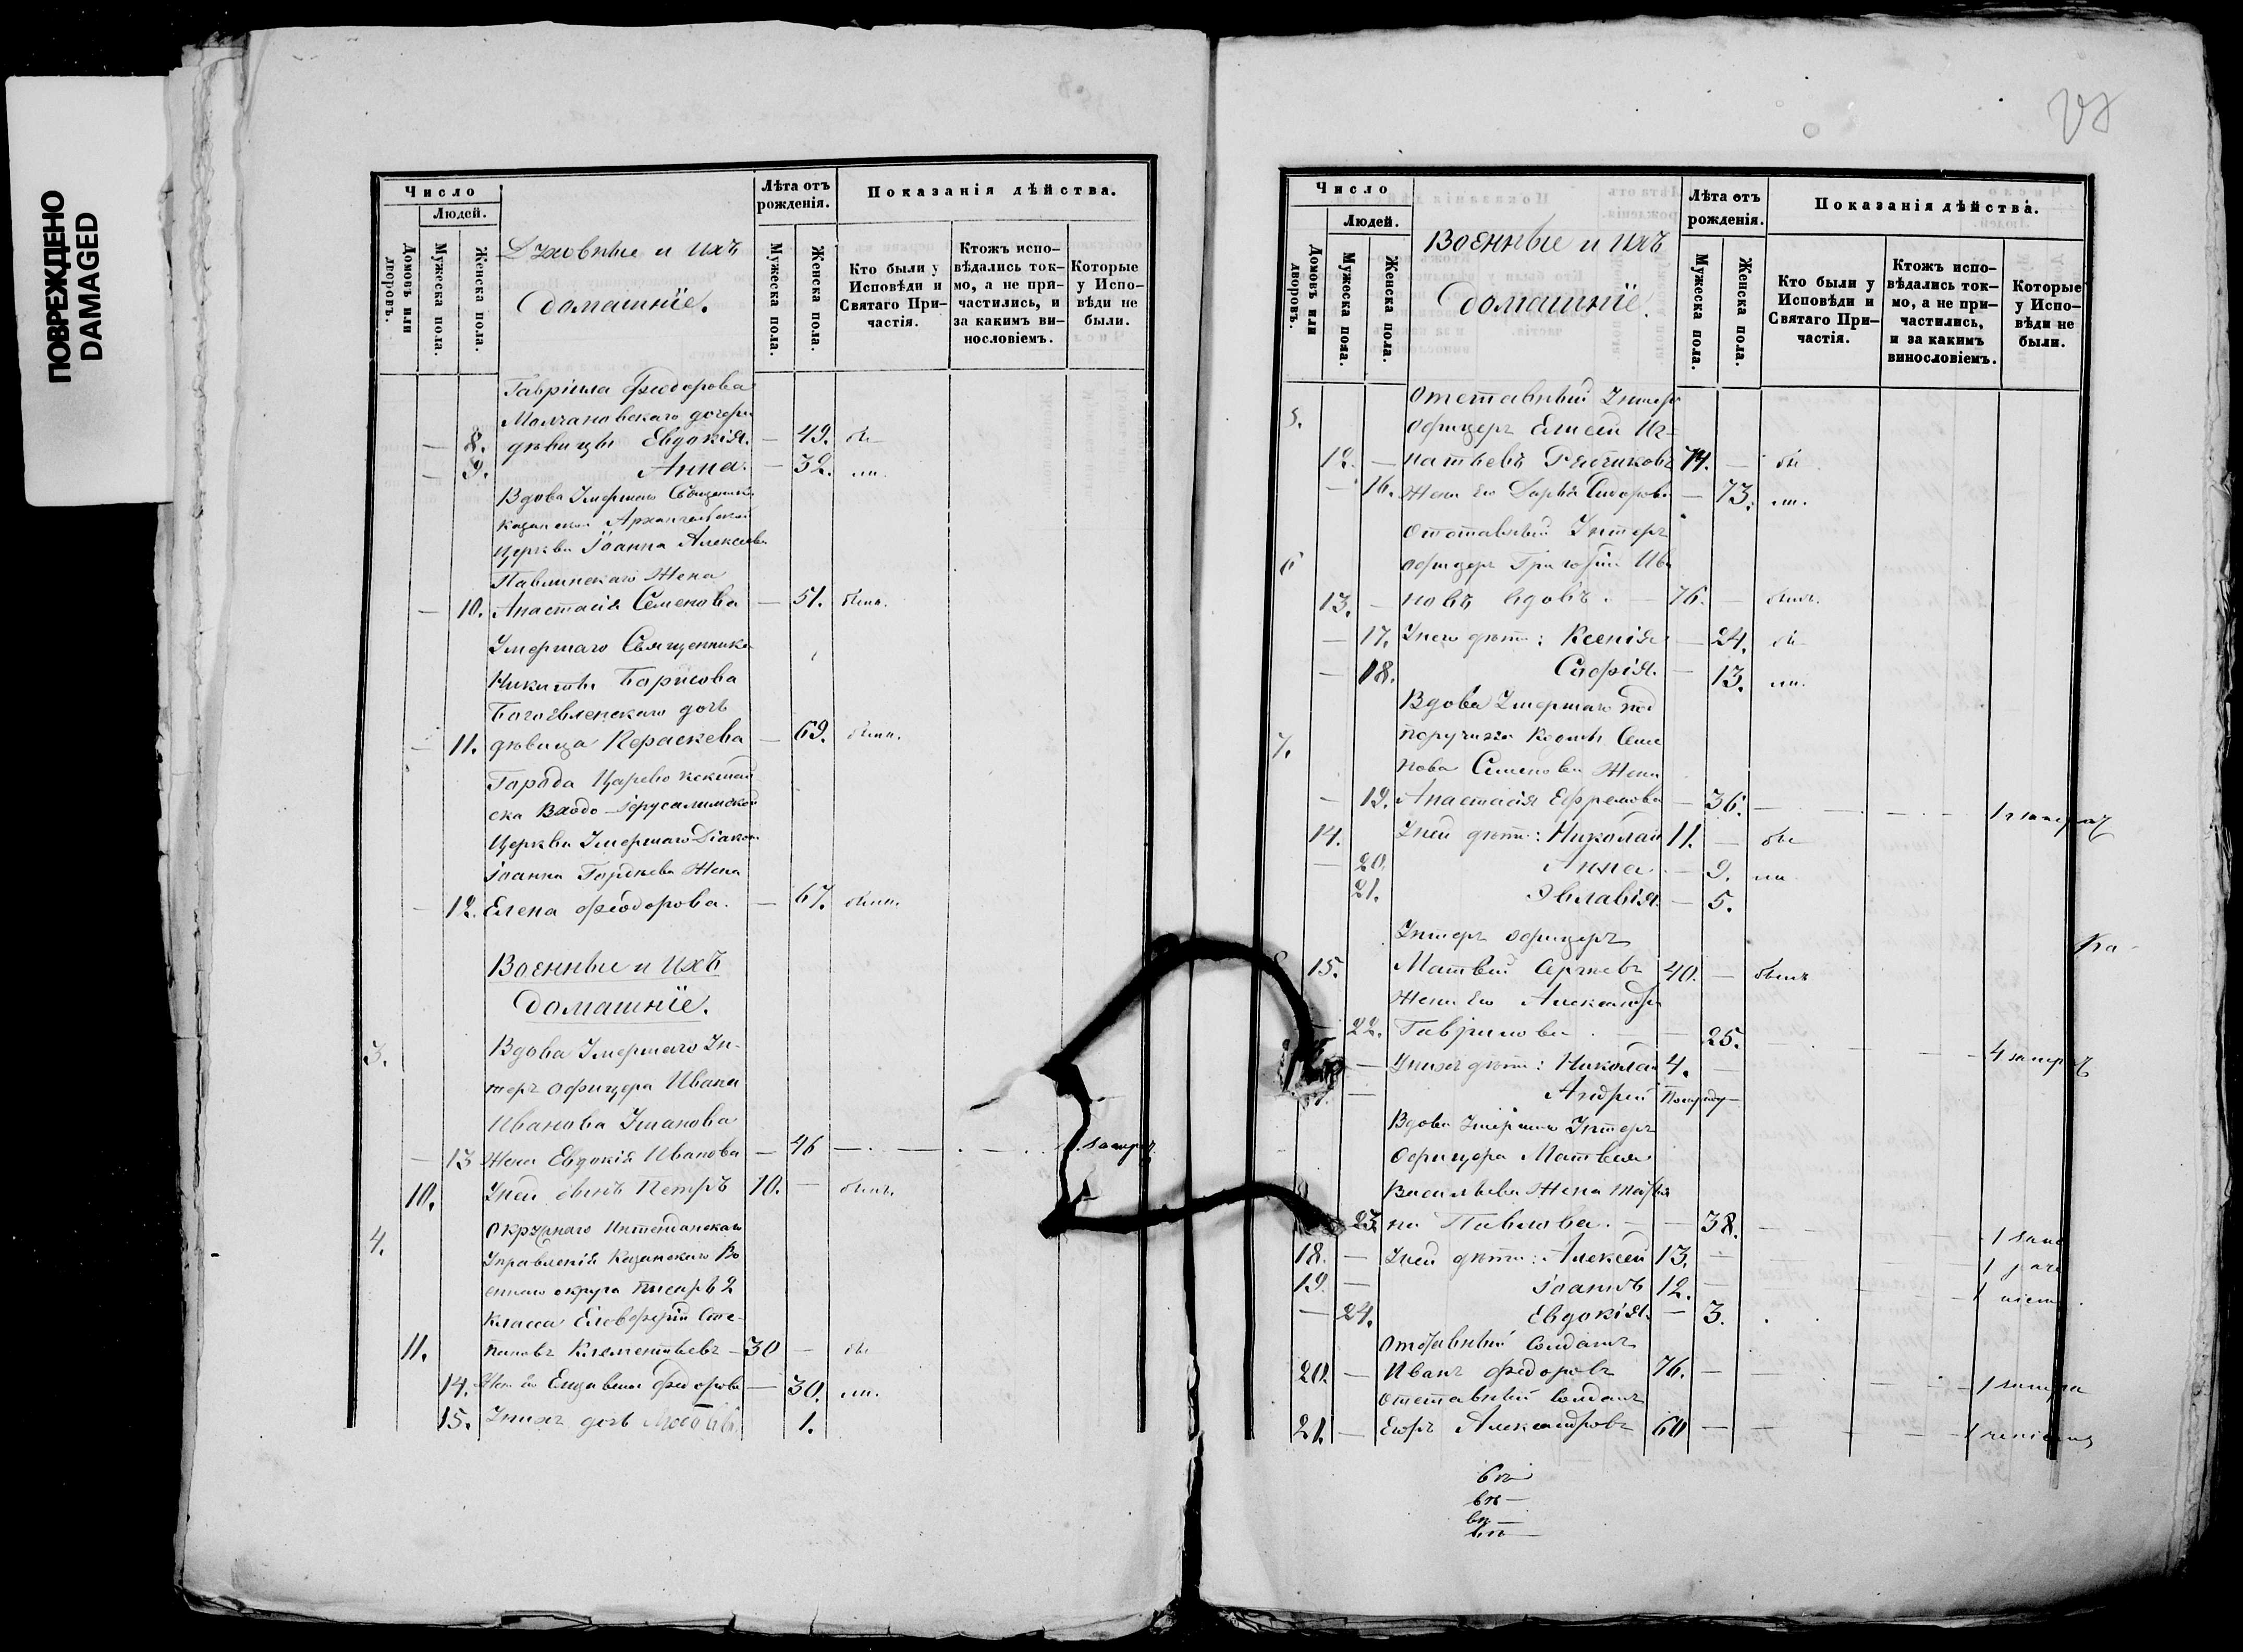 ПОВРЕЖДЕНО
DAMAGED
Число
Людей.
Домовъ или дворовъ.
Мужеска пола.
Женска пола.
Духовные и ихъ
домашнїе.
Лѣта отъ рожденія.
Мужеска пола.
Женска пола.
Показанія дѣйства.
Кто были у Исповѣди и Святаго Причастія.
Ктожъ исповѣдались токмо, а не причастились, и за какимъ винословіемъ.
Которые у Исповѣди не были.
Гавріила Феодорова
Молчановскаго дочери
— 8. дѣвицы Евдокія. — 49. бы
— 9. Анна. — 32. ли.
Вдова Умершаго Священника
Казанской Архангельской
Церкви Іоанна Алексѣева
Павлинскаго Жена
— 10. Анастасія Семенова — 51. была.
Умершаго Священника
Никиты Борисова
Богоявленскаго дочь
— 11. дѣвица Пераскева — 69. была.
Города Царевококшай
ска Входо-Іерусалимской
Церкви Умершаго Діакона
Іоанна Гордѣева Жена
— 12. Елена Феодорова. — 67. была.
Военные и ихъ
домашнїе.
3. Вдова Умершаго Ун-
теръ офицера Ивана
Иванова Уманова
— 13 Жена Евдокія Иванова — 46 — 1.
10. Уней сынъ Петръ 10. — былъ.
4. Окружнаго Интендантскаго
Управленія Казанскаго Во
еннаго округа писарь 2
Класса Елевферій Сте-
11. пановъ Клементьевъ — 30 — бы
14. Жена его Елизавета Федорова — 30. ли.
15. Унихъ дочь Любовь. 1.
Число
Людей.
Домовъ или дворовъ.
Мужеска пола.
Женска пола.
Военные и ихъ
домашнїе.
Лѣта отъ рожденія.
Мужеска пола.
Женска пола.
Показанія дѣйства.
Кто были у Исповѣди и Святаго Причастія.
Ктожъ исповѣдались токмо, а не причастились, и за какимъ винословіемъ.
Которые у Исповѣди не были.
5. Отставный Унтеръ
офицеръ Елисей Иг=
12. — натьевъ Рябчиковъ 74. — бы
— 16. Жена его Дарья Сидорова — 73. ли.
Отставный Унтеръ
6 офицеръ Григорій Ива
13. — новъ вдовъ. — 76. — былъ.
— 17. Унего дѣти: Ксенія — 24. бы
— 18. Софія. — 13. ли.
Вдова Умершаго под
7. поручика Козьмы Семе
нова Семенова Жена
— 19. Анастасія Ефремова — 36. — 1
14. Уней дѣти: Николай 11. — бы
— 20. Анна. — 9. ли
21. Эвлавія. — 5.
Унтеръ офицеръ
15. Матвей Сергѣевъ 40. — былъ
Жена его Александра
22. Гаврилова — 25.
— Унихъ дѣти: Николай 4. — 4
— Андрей
Вдова Умершаго Унтеръ
Офицера Матвея
Васильева Жена
23. на Павлова. — 38. — 1
18. — Уней дѣти: Алексей 13. — 1
19. — Іоаннъ 12. — 1
— 24. Евдокія. — 3.
Отставный Солдатъ
20. — Иванъ Федоровъ 76. — 1
Отставный Солдатъ
21. — Егоръ Александровъ 60 — 1